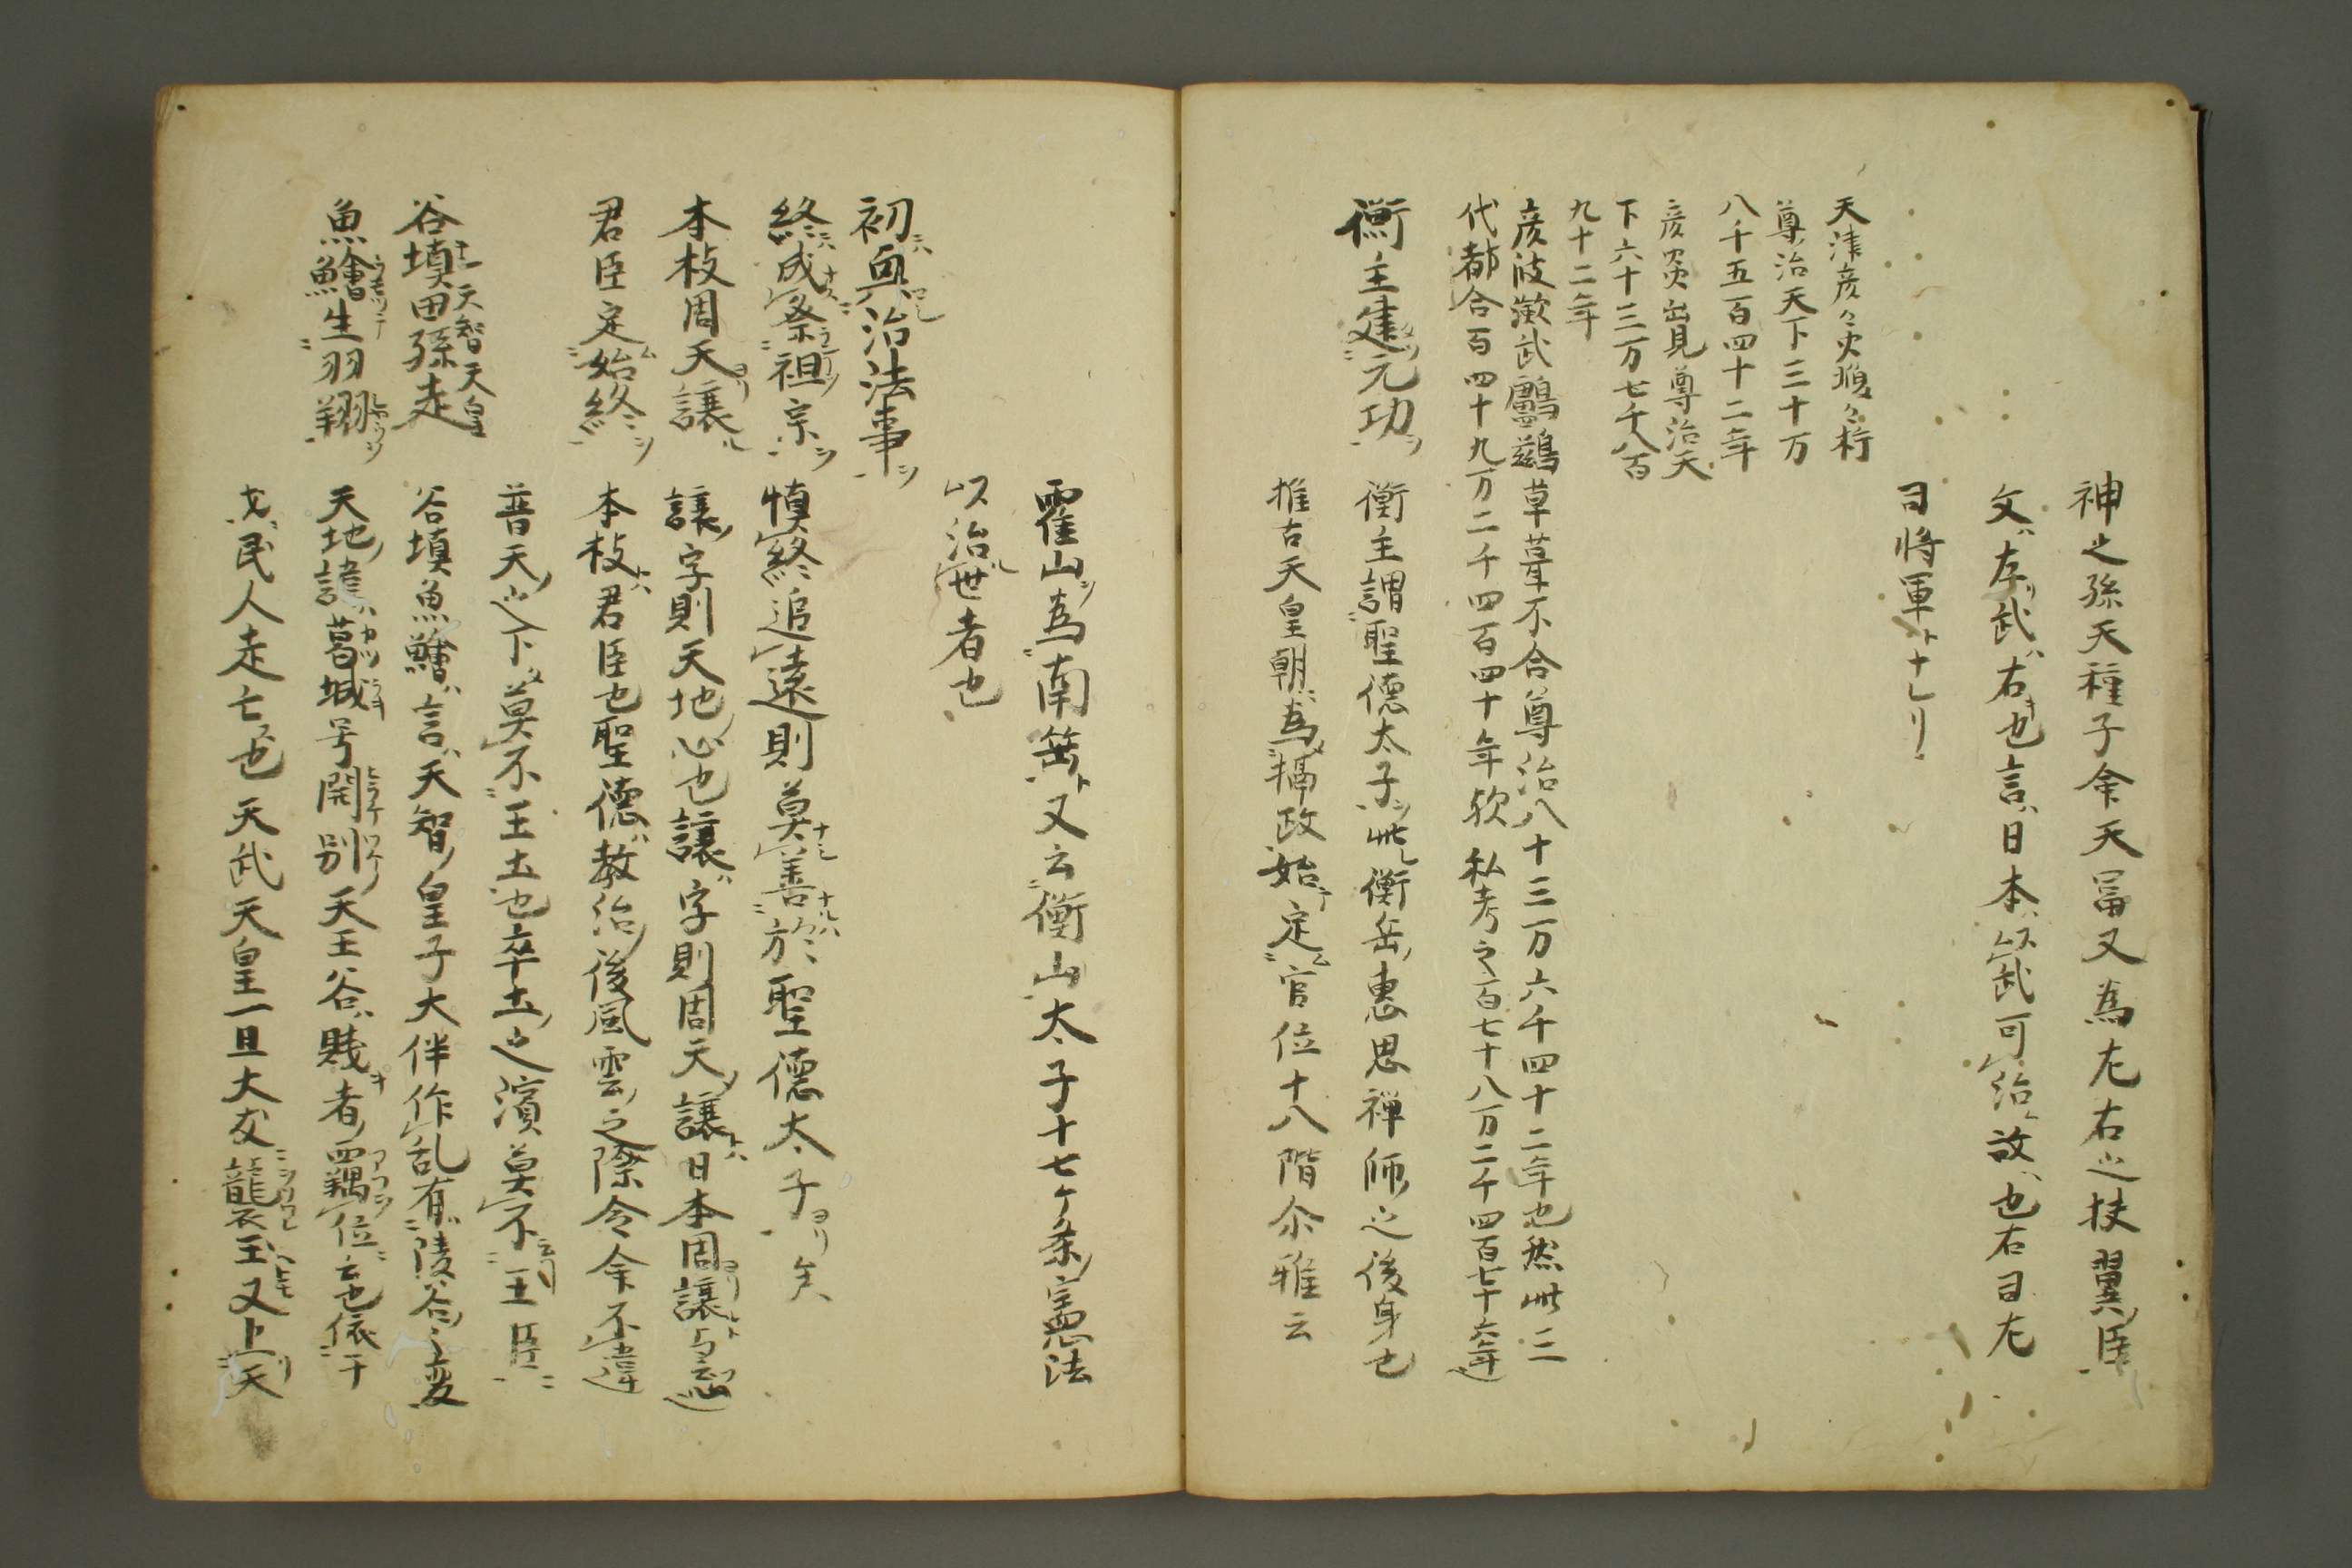 神之孫天種子命天冨又為左右之扶翼臣
文ハ左武ハ右也言ハ日本ハ以武可治故也右曰左
曰将軍ト十七リ
天津彦々火瓊々杵
尊治天下三十万
八千五百四十二年
彦火火出見尊治天
下六十三万七千八百
九十二年
彦波瀲武鸕鷀草葺不合尊治八十三万六千四十二年也然此三
代都合百四十九万二千四百四十年欤私考之百七十八万二千四百七十六年
衡主建元功
衡主謂聖徳太子此衡岳恵思禅師之後身也
推古天皇朝為摂政始定官位十八階尒雅云
霍山為南岳又云衡山太子十七ケ条憲法
以治世者也
初興治法事
終成祭祖宗
慎終追遠則莫善於聖徳太子矣
本枝周天譲
譲字則天地心也譲字則周天譲日本周譲与
君臣定始終
本枝君臣也聖徳教治後風雲之際令余不違
普天之下莫不王土也卒土之濱莫不王臣
谷填田孫走
天智天皇
谷填魚鱠言天智皇子大伴作乱有陵谷之変
魚鱠生羽翔
天地諱葛城号開別天王谷賤者竊位也依干
戈民人走亡也天武天皇一旦大友襲王又上天